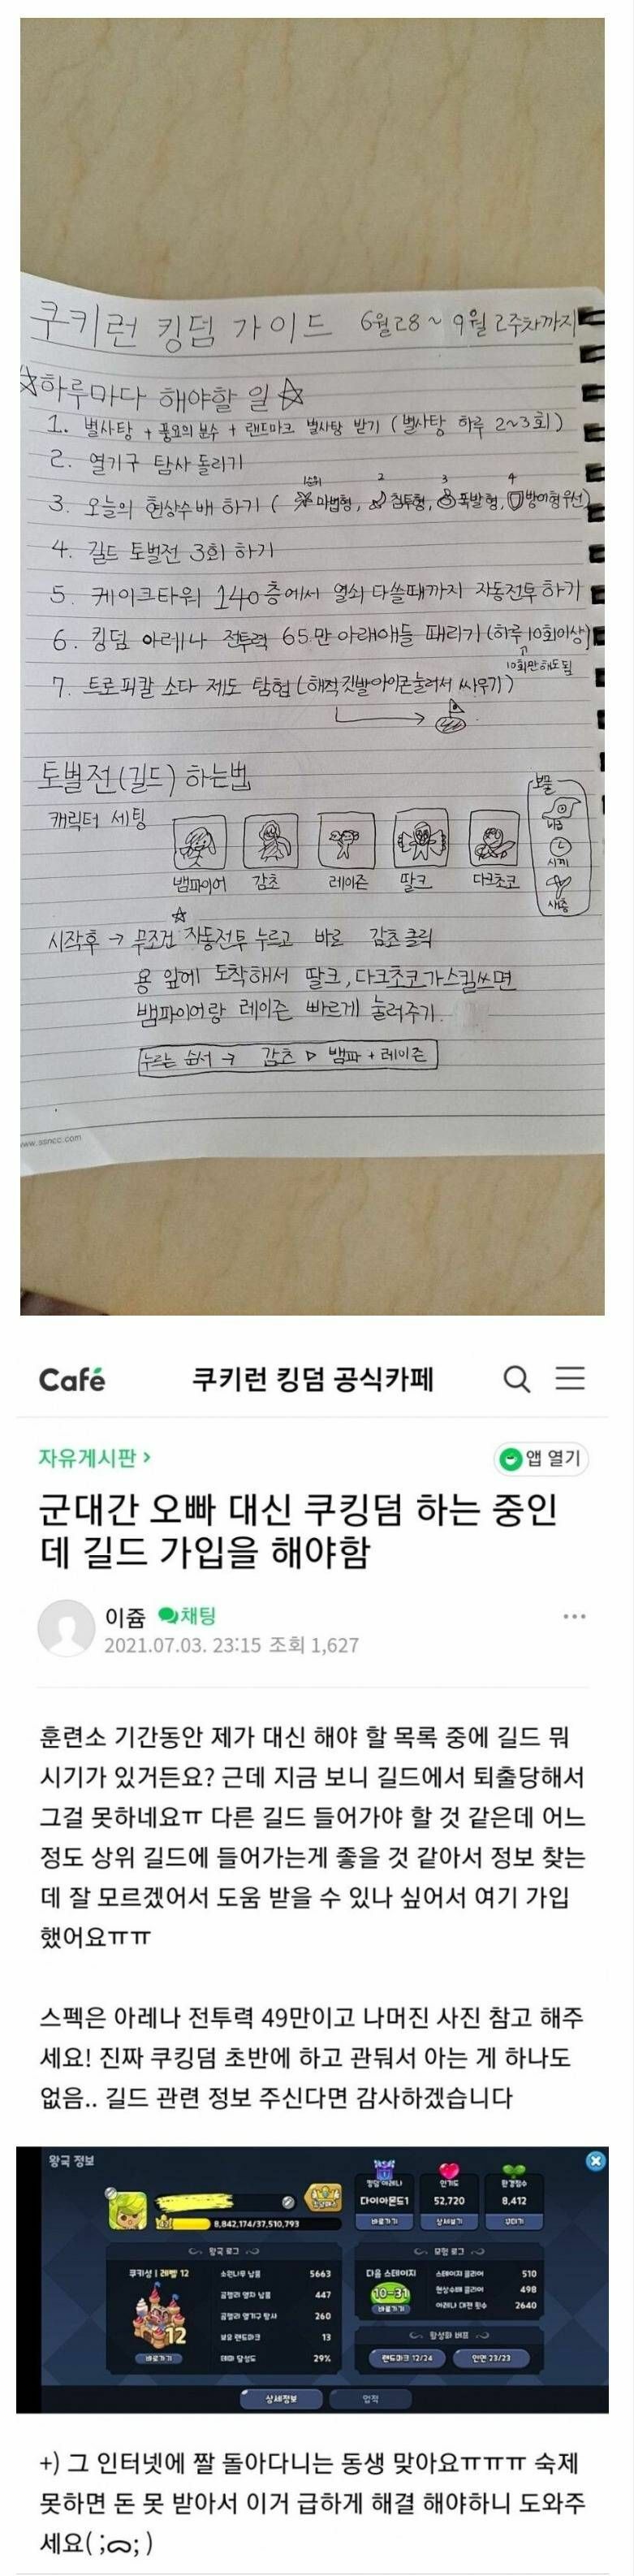 쿠키런 킹덤 가이드 6월28 ~ 9월 2주차까지
☆하루마다 해야할 일☆
1. 별사탕 + 풍요의 분수 + 랜드마크 별사탕 받기 (별사탕 하루 2~3회)
2. 열기구 탐사 돌리기
3. 오늘의 현상수배 하기 ( 1순위 마법형, 2 침투형, 3 폭발형, 4 방어형 우선)
4. 길드 토벌전 3회 하기
5. 케이크타워 140층에서 열쇠 다쓸때까지 자동전투 하기
6. 킹덤 아레나 전투력 65만 아래애들 때리기 (하루 10회이상)
10회만해도됨
7. 트로피칼 소다 제도 탐험 (해적깃발아이콘눌러서 싸우기)
토벌전(길드) 하는법
보물
캐릭터 세팅
뱀파이어 감초 레이즌 딸크 다크초코
시계
시작후 → 무조건 자동전투 누르고 바로 감초클릭
용 앞에 도착해서 딸크, 다크초코가스킬쓰면
뱀파이어랑 레이즌 빠르게 눌러주기.
누르는 순서 → 감초 ▷ 뱀파 + 레이즌
www.ssncc.com
Café 쿠키런 킹덤 공식카페
자유게시판 > 앱 열기
군대간 오빠 대신 쿠킹덤 하는 중인
데 길드 가입을 해야함
이쥼 채팅
2021.07.03. 23:15 조회 1,627
훈련소 기간동안 제가 대신 해야 할 목록 중에 길드 뭐
시기가 있거든요? 근데 지금 보니 길드에서 퇴출당해서
그걸 못하네요ㅠ 다른 길드 들어가야 할 것 같은데 어느
정도 상위 길드에 들어가는게 좋을 것 같아서 정보 찾는
데 잘 모르겠어서 도움 받을 수 있나 싶어서 여기 가입
했어요ㅠㅠ
스펙은 아레나 전투력 49만이고 나머진 사진 참고 해주
세요! 진짜 쿠킹덤 초반에 하고 관둬서 아는 게 하나도
없음.. 길드 관련 정보 주신다면 감사하겠습니다
왕국 정보
킹덤 아레나 인기도 환경점수
다이아몬드1 52,720 8,412
바로가기 상세보기 꾸미기
8,842,174/37,510,793
왕국 로그 모험 로그
쿠키성 | 레벨 12
12
바로가기
소원나무 납품 5663
곰젤리 열차 납품 447
곰젤리 열기구 탐사 260
보유 랜드마크 13
테마 달성도 29%
다음 스테이지
10-31
바로가기
스테이지 클리어 510
현상수배 클리어 498
아레나 대전 횟수 2640
활성화 버프
랜드마크 12/24 인연 23/23
상세정보 업적
+) 그 인터넷에 짤 돌아다니는 동생 맞아요ㅠㅠㅠ 숙제
못하면 돈 못 받아서 이거 급하게 해결 해야하니 도와주
세요( ;ᯅ; )